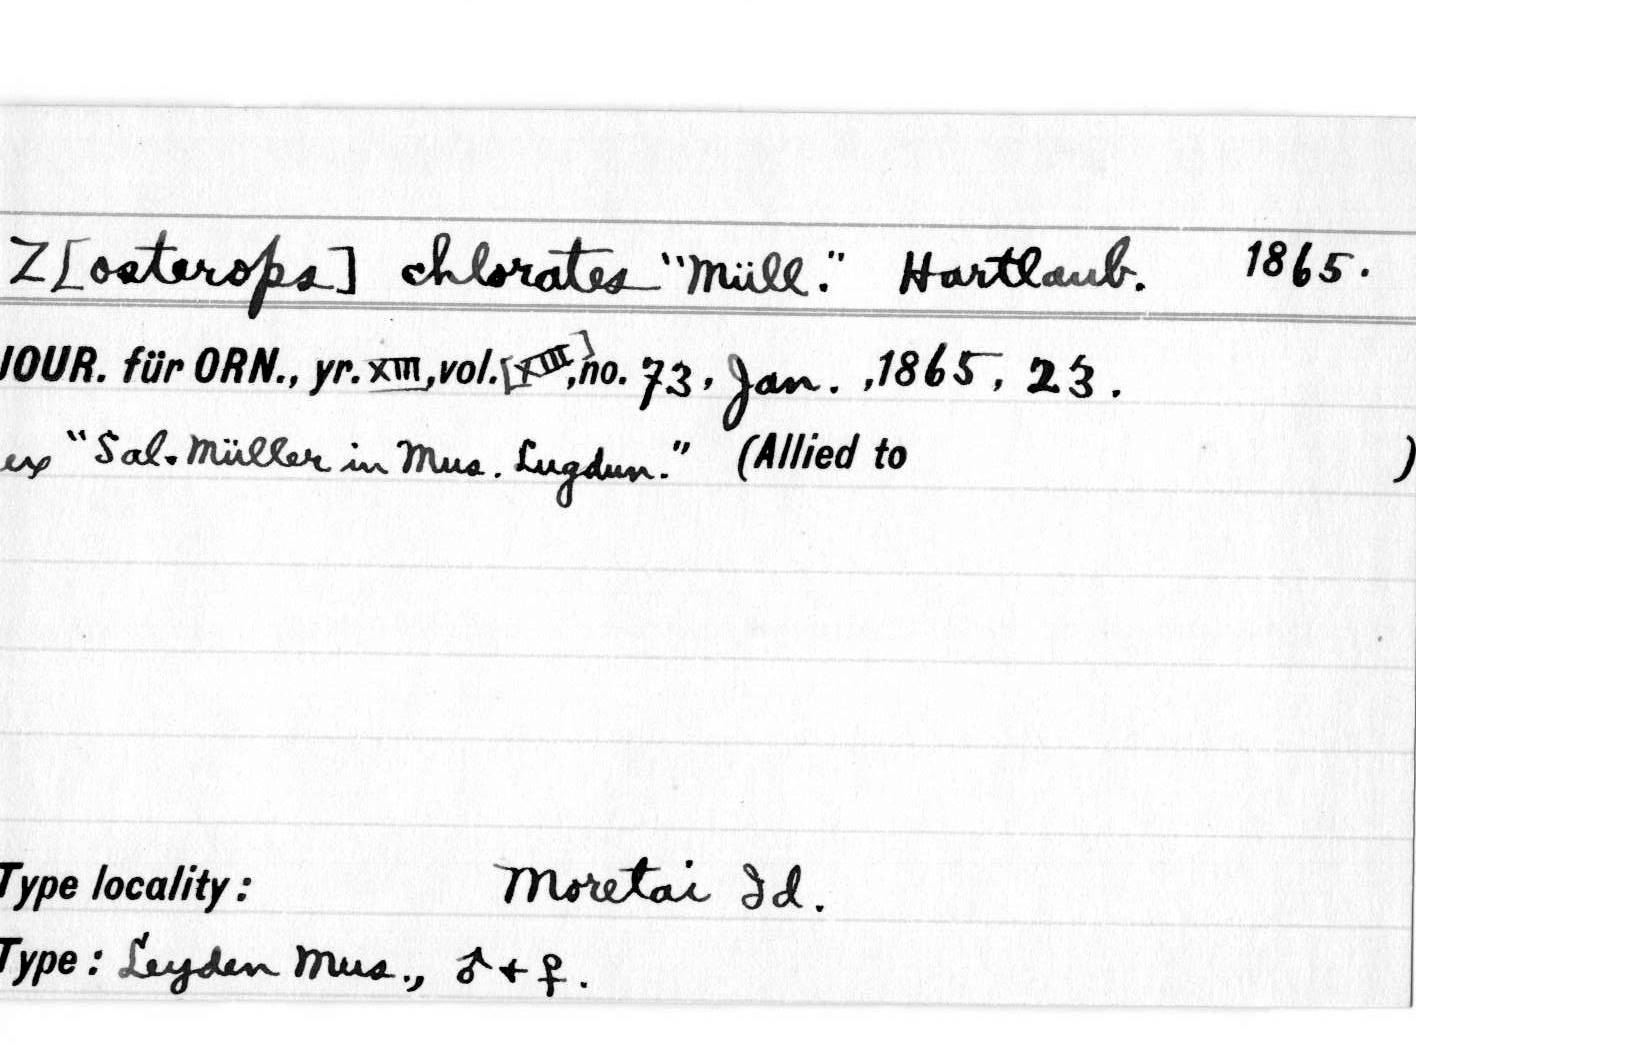 Z[osterops] chlorates "Müll." Hartlaub. 1865.
JOUR. für ORN., yr. XIII, vol. [XIII], no. 73, Jan., 1865, 23.
ex "Sal. Müller in Mus. Lugdun." (Allied to )
Type locality: Moretai Id.
Type: Leyden Mus., ♂ + ♀.